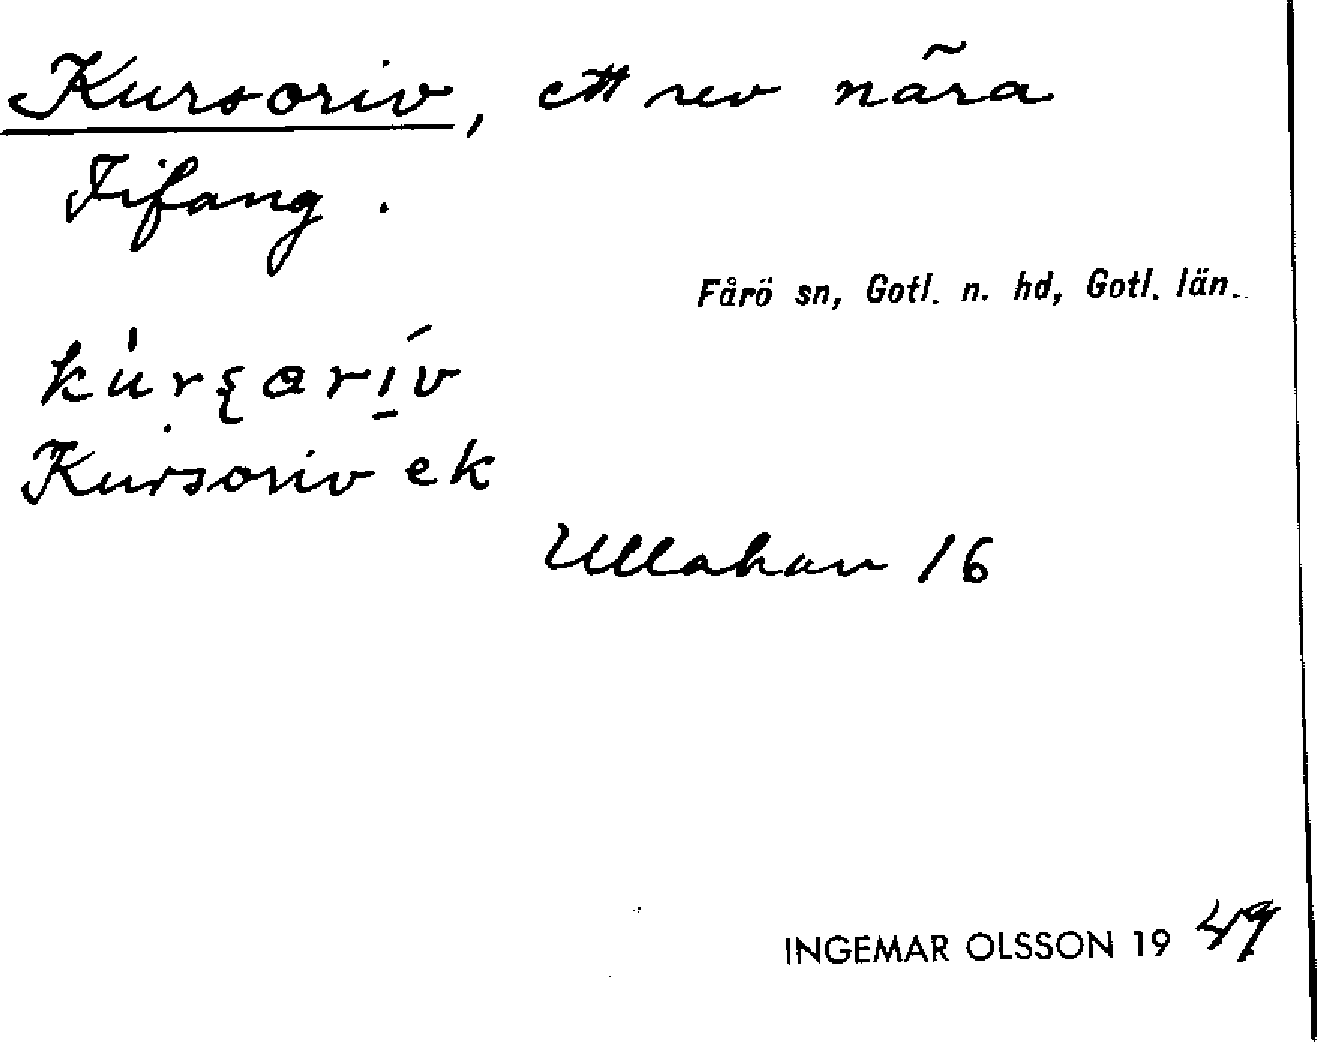 Kursoriv, ett rev nära
Fifang.
Fårö sn, Gotl. n. hd, Gotl. län.
Kursoriv ek
Ullahau 16
INGEMAR OLSSON 19 49